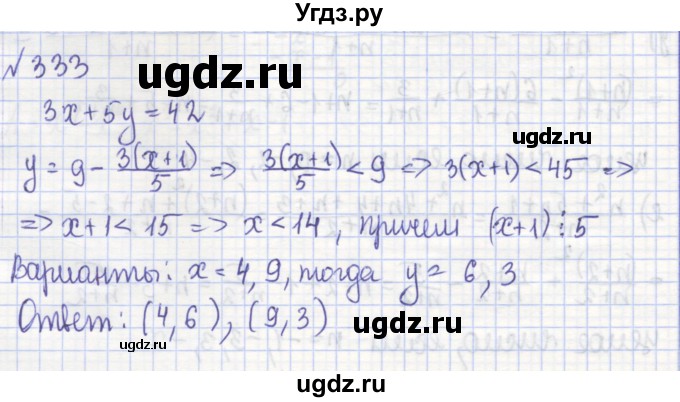 Угдз.ру
№ 333
ugdz.ru
3x + 5y = 42
ugdz.ru
y = 9 - 3(x+1)/5 => 3(x+1)/5 < 9 => 3(x+1) < 45 =>
=> x+1 < 15 => x < 14, причем (x+1) ⋮ 5
Варианты: x = 4, 9, тогда y = 6, 3
Ответ: (4,6), (9,3)
ugdz.ru
ugdz.ru
ugdz.ru
ugdz.ru